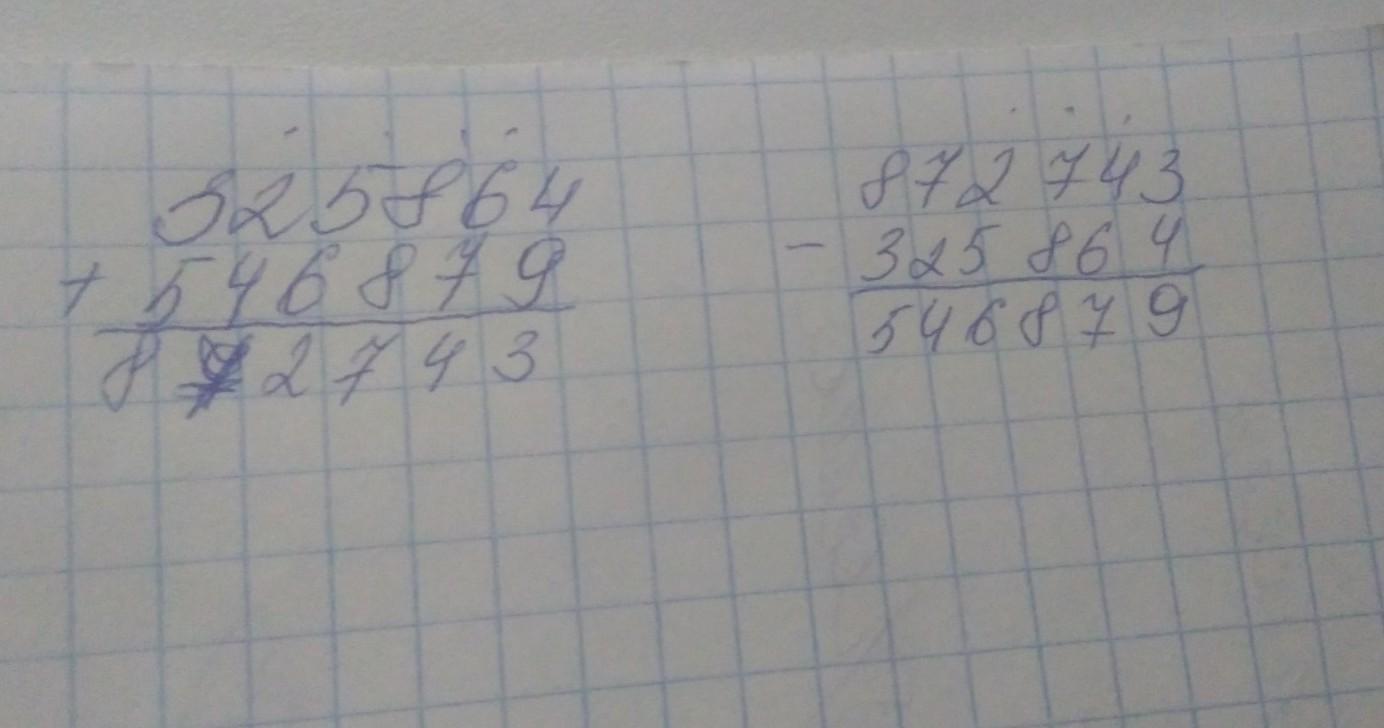 325864
+ 546879
872743
872743
- 325864
546879